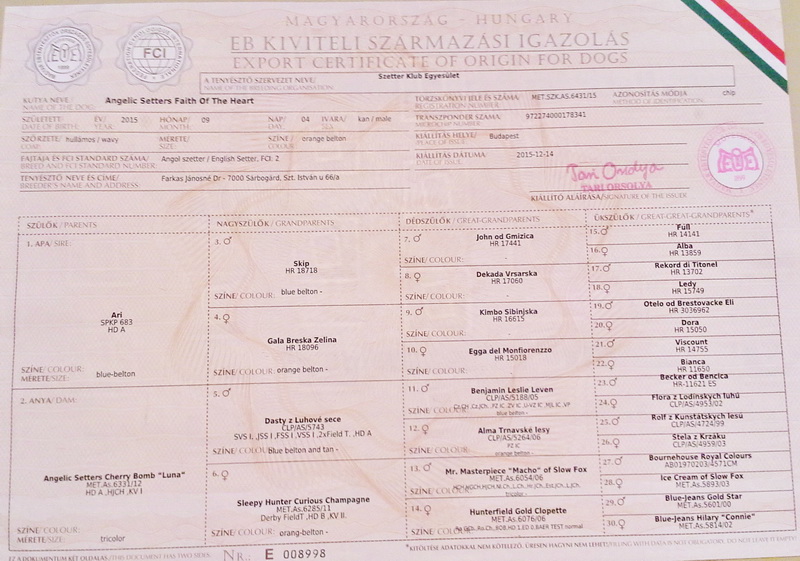 MAGYARORSZÁG - HUNGARY
EB KIVITELI SZÁRMAZÁSI IGAZOLÁS
EXPORT CERTIFICATE OF ORIGIN FOR DOGS
FCI
A TENYÉSZTŐ SZERVEZET NEVE/ Szetter Klub Egyesület
NAME OF THE BREEDING ORGANISATION:
KUTYA NEVE / Angelic Setters Faith Of The Heart
NAME OF THE DOG:
TÖRZSKÖNYVI JELE ÉS SZÁMA/ MET.SZK.AS.6431/15 AZONOSÍTÁS MÓDJA chip
REGISTRATION NUMBER: METHOD OF IDENTIFICATION:
SZÜLETETT/ ÉV/ 2015 HÓNAP/ 09 NAP/ 04 IVARA/ kan / male
DATE OF BIRTH: YEAR: MONTH: DAY: SEX:
TRANSZPONDER SZÁMA/ 972274000178341
MICROCHIP NUMBER:
SZŐRZETE/ hullámos / wavy MÉRETE/ SZÍNE/ orange belton
COAT: SIZE: COLOUR:
KIÁLLÍTÁS HELYE/ Budapest
PLACE OF ISSUE:
FAJTÁJA ÉS FCI STANDARD SZÁMA/ Angol szetter / English Setter, FCI: 2
BREED AND FCI STANDARD NUMBER:
KIÁLLÍTÁS DÁTUMA: 2015-12-14
DATE OF ISSUE:
TENYÉSZTŐ NEVE ÉS CÍME/ Farkas Jánosné Dr - 7000 Sárbogárd, Szt. István u 66/a
BREEDER'S NAME AND ADDRESS:
Tari Orsolya
TARI ORSOLYA
KIÁLLÍTÓ ALÁÍRÁSA/SIGNATURE OF THE ISSUER:
SZÜLŐK / PARENTS
NAGYSZÜLŐK / GRANDPARENTS
DÉDSZÜLŐK / GREAT-GRANDPARENTS
ÜKSZÜLŐK / GREAT-GREAT-GRANDPARENTS*
1. APA/ SIRE:
Ari
SPKP 683
HD A
SZÍNE/ COLOUR:
MÉRETE/SIZE: blue-belton
2. ANYA/ DAM:
Angelic Setters Cherry Bomb "Luna"
MET.As.6331/12
HD A ,HJCH ,KV I
SZÍNE/ COLOUR:
MÉRETE/SIZE: tricolor
3. ♂
Skip
HR 18718
SZÍNE/ COLOUR: blue belton -
4. ♀
Gala Breska Zelina
HR 18096
SZÍNE/ COLOUR: orange belton -
5. ♂
Dasty z Luhové sece
CLP/AS/5743
SVS I.,JSS I ,FSS I ,VSS I .,2xField T. ,HD A
SZÍNE/ COLOUR: blue belton and tan -
6. ♀
Sleepy Hunter Curious Champagne
MET.As.6285/11
Derby FieldT ,HD B ,KV II.
SZÍNE/ COLOUR: orang-belton -
7. ♂ John od Gmizica
HR 17441
SZÍNE/ COLOUR: -
8. ♀ Dekada Vrsarska
HR 17060
SZÍNE/ COLOUR: -
9. ♂ Kimbo Sibinjska
HR 16615
SZÍNE/ COLOUR: -
10. ♀ Egga del Monfiorenzzo
HR 15018
SZÍNE/ COLOUR: -
11. ♂ Benjamin Leslie Leven
CLP/AS/5188/05
SZÍNE/ COLOUR: blue belton -
12. ♀ Alma Trnavské lesy
CLP/AS/5264/06
PZ IC
SZÍNE/ COLOUR: orange belton -
13. ♂ Mr. Masterpiece "Macho" of Slow Fox
MET.As.6054/06
SZÍNE/ COLOUR: tricolor -
14. ♀ Hunterfield Gold Clopette
MET.As.6076/06
SZÍNE/ COLOUR:
15. ♂ Füll
HR 14141
16. ♀ Alba
HR 13859
17. ♂ Rekord di Titonel
HR 13702
18. ♀ Ledy
HR 15749
19. ♂ Otelo od Brestovacke Eli
HR 3036962
20. ♀ Dora
HR 15050
21. ♂ Viscount
HR 14755
22. ♀ Bianca
HR 11650
23. ♂ Becker od Bencica
HR-11621 ES
24. ♀ Flora z Lodinských luhů
CLP/AS/4953/02
25. ♂ Rolf z Kunstátskych lesú
CLP/AS/4724/99
26. ♀ Stela z Krzáku
CLP/AS/4959/03
27. ♂ Bournehouse Royal Colours
AB01970203/4571CM
28. ♀ Ice Cream of Slow Fox
MET.As.5893/03
29. ♂ Blue-Jeans Gold Star
MET.As.5601/00
30. ♀ Blue-Jeans Hilary "Connie"
MET.As.5814/02
EZ A DOKUMENTUM KÉT OLDALAS/THIS DOCUMENT HAS TWO SIDES.
NR.: E 008998